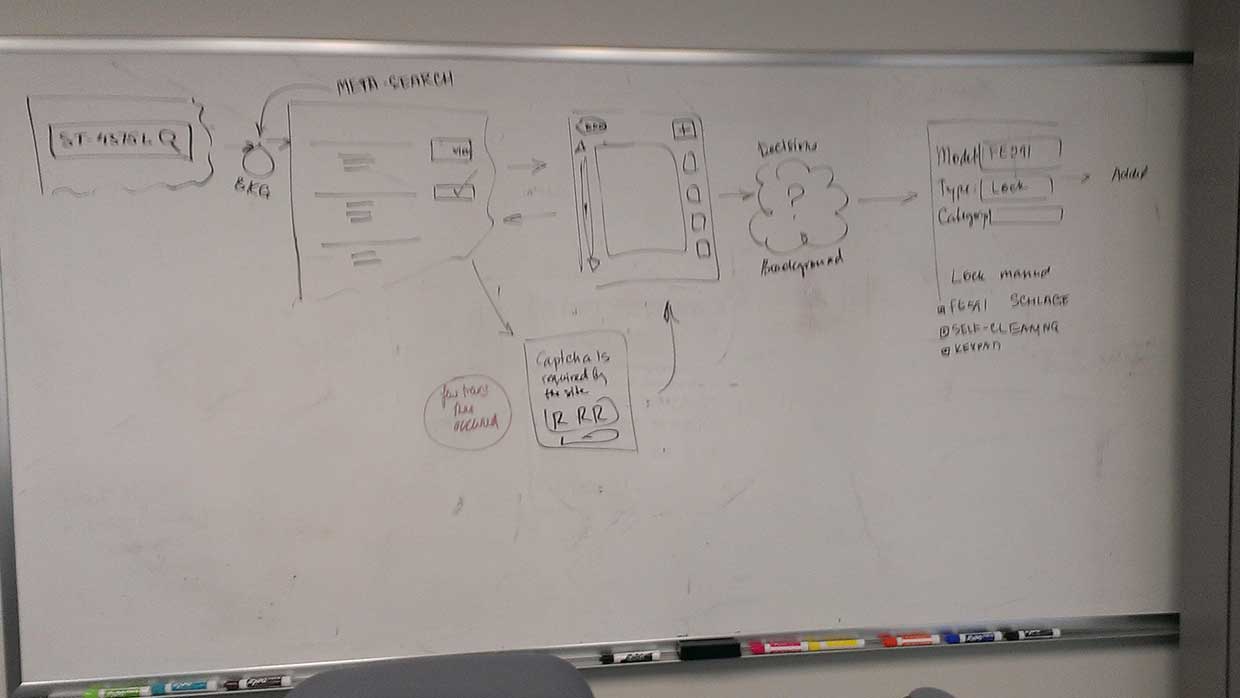 META-SEARCH
BKG
Decisions
?
Background
Model FE591
Type: Lock
Category
Added
Lock manual
FE591 SCHLAGE
SELF-CLEANING
KEYPAD
Captcha is
required by
the site
R RR
has
occured